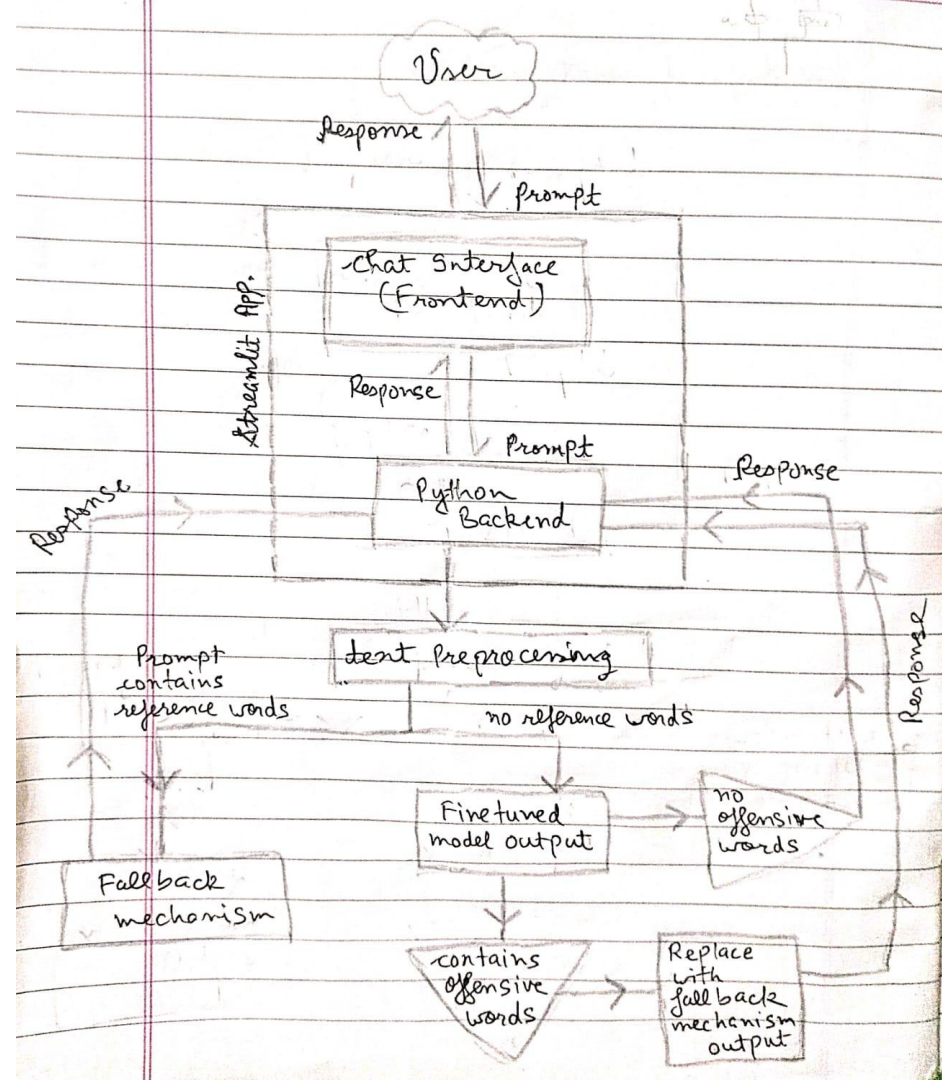 User
Response
Prompt
Chat Interface
(Frontend)
Streamlit App.
Response
Prompt
Python
Backend
Response
Response
Text Preprocessing
Prompt
contains
reference words
no reference words
Response
Finetuned
model output
no
offensive
words
Fallback
mechanism
contains
offensive
words
Replace
with
fallback
mechanism
output